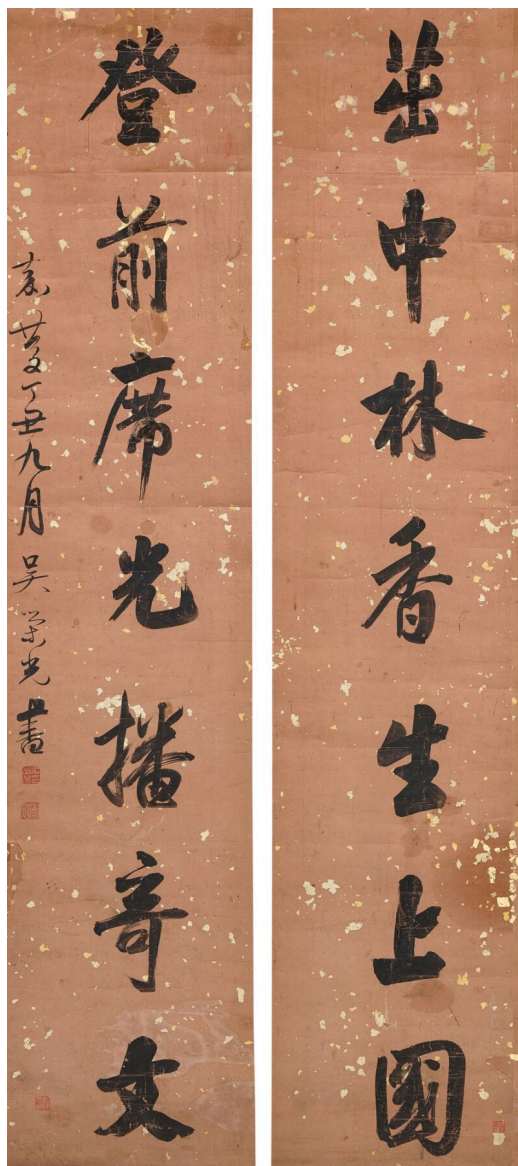 茁中林香生上國
登前席光播奇文
嘉慶丁丑九月吳榮光書